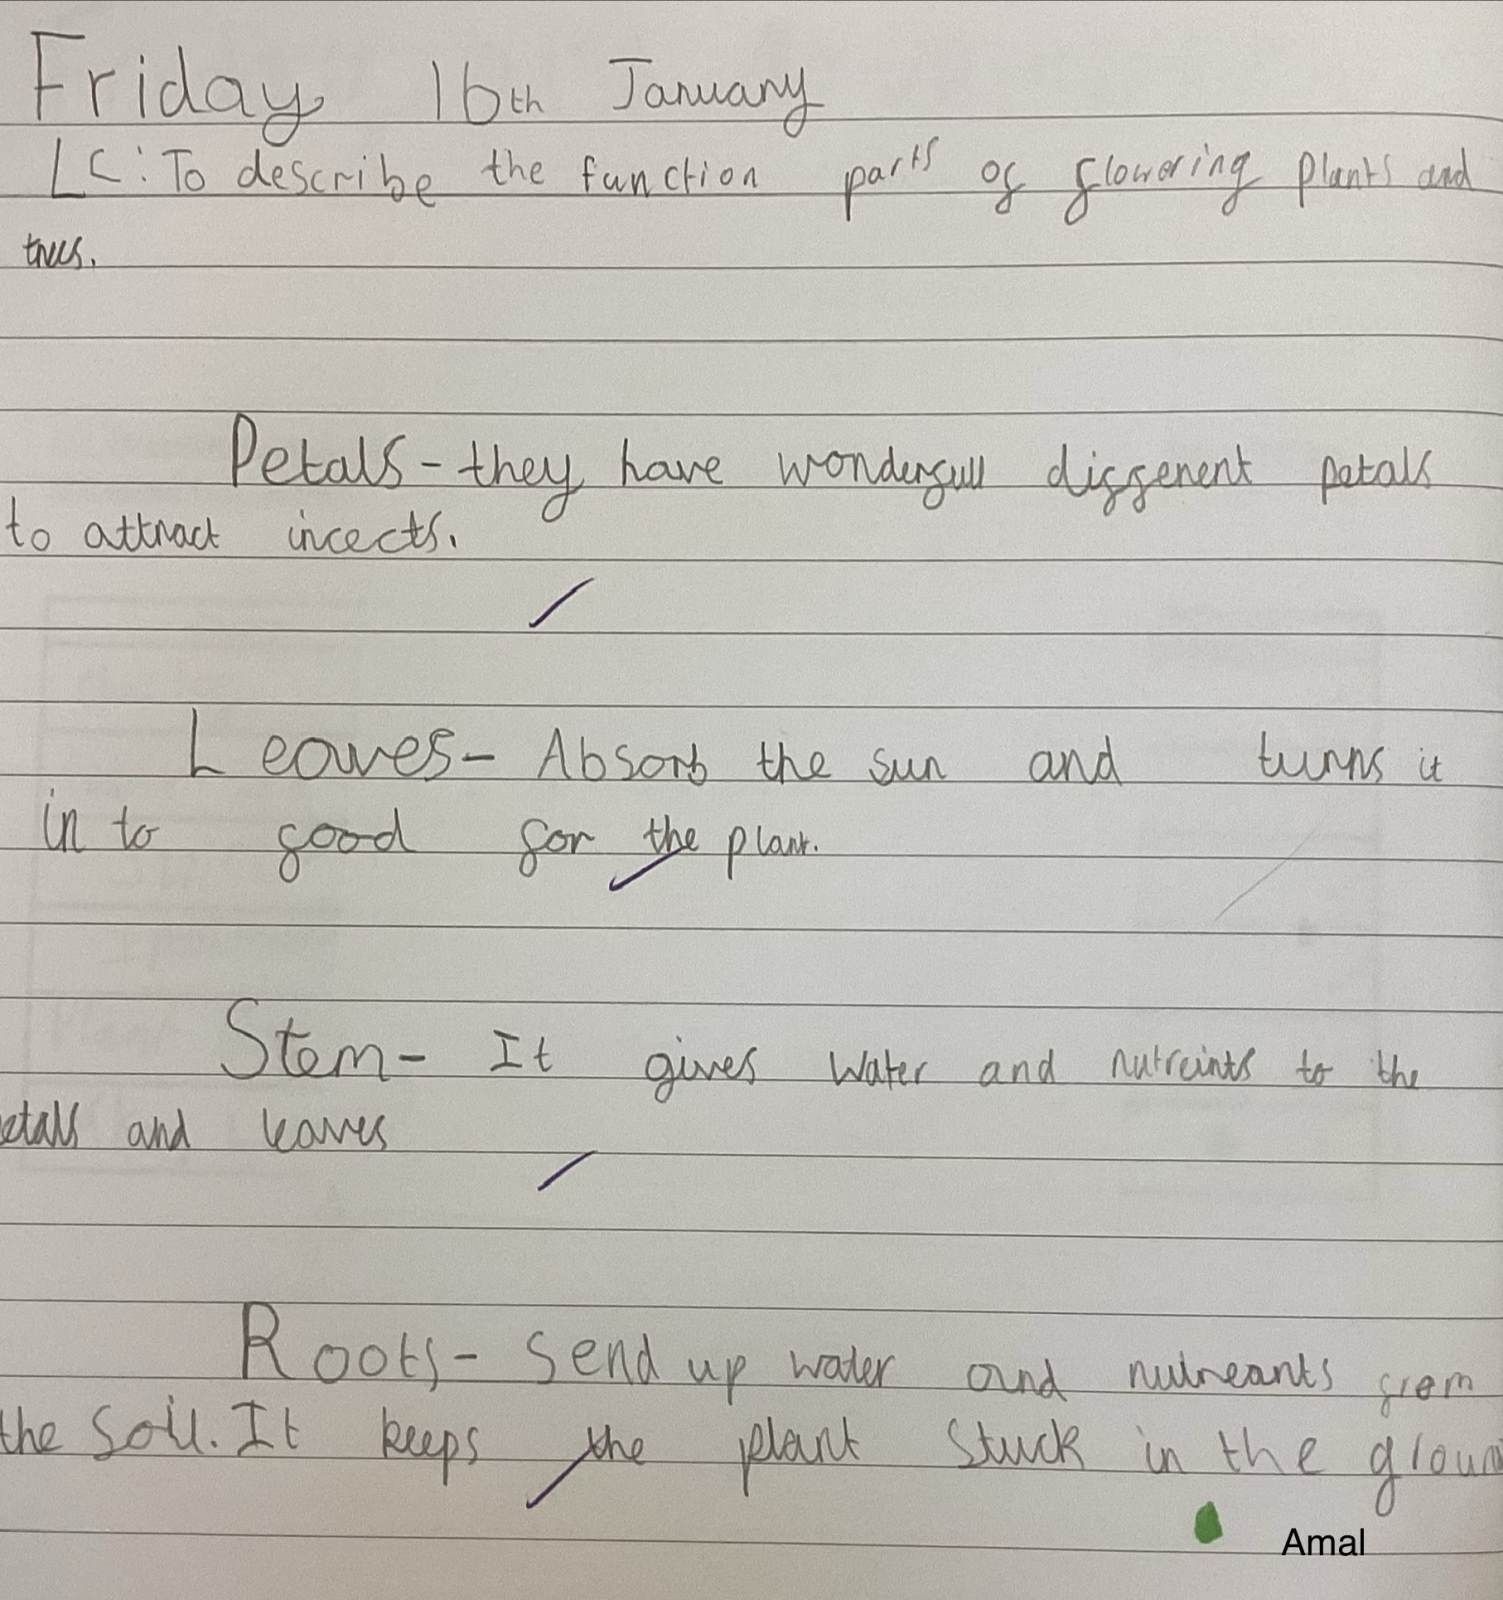 Friday 16th January
LC: To describe the function parts of flowering plants and
trees.
Petals - they have wonderfull diffenent petals
to attract incects.
Leaves - Absorb the sun and turns it
in to food for the plant.
Stem - It gives water and nutreints to the
etals and leaves
Roots - Send up water and nutreants from
the soil. It keeps the plant stuck in the groun
Amal